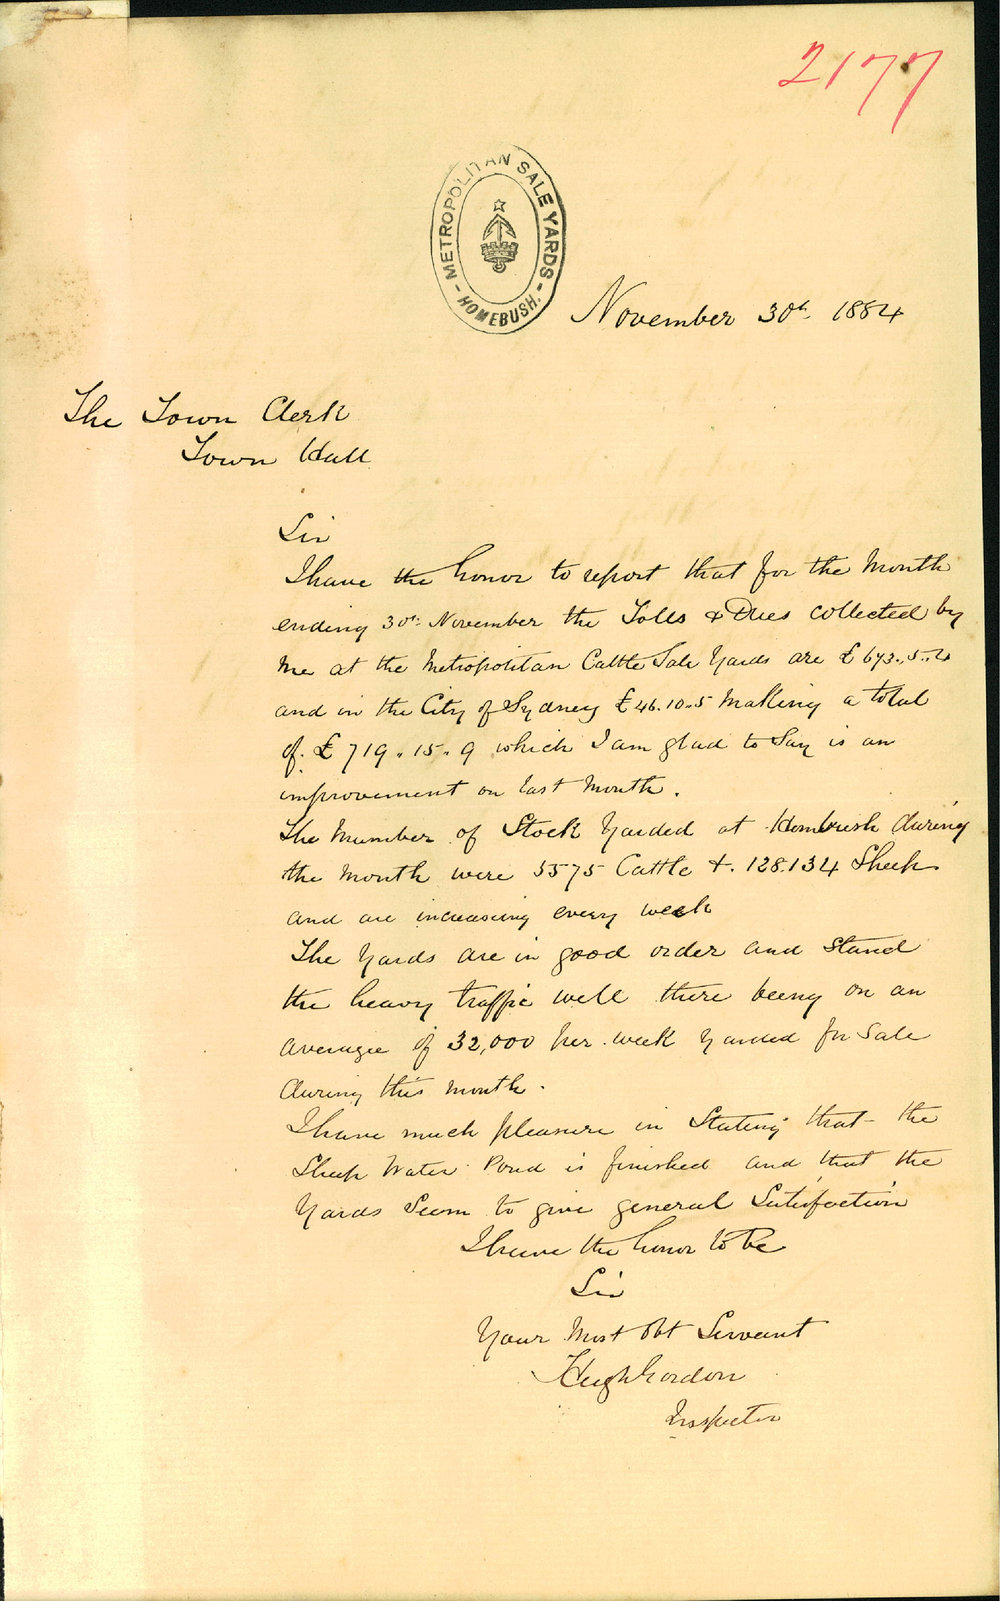 2177
METROPOLITAN SALE YARDS
- HOMEBUSH. -
November 30th 1884
The Town Clerk
Town Hall
Sir
I have the honor to report that for the Month
ending 30th November the Tolls & Dues collected by
me at the Metropolitan Cattle Sale Yards are £673..5..4
and in the City of Sydney £46.10..5 Making a total
of. £719..15..9 which I am glad to Say is an
improvement on last Month.
The Number of Stock Yarded at Hombush during
the Month were 5575 Cattle &. 128.134 Sheep
and are increasing every week
The Yards are in good order and Stand
the heavy traffic well there being on an
average of 32,000 per week Yarded for Sale
during this Month.
I have much pleasure in Stating that the
Sheep Water Pond is finished and that the
Yards Seem to give general Satisfaction
I have the honor to Be
Sir
Your Most Obt Servant
Hugh Gordon
Inspector